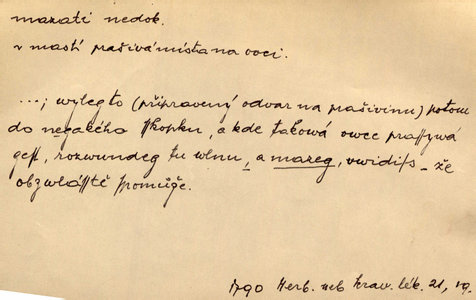 mazati nedok.
v mastí prašivá místa na ovci.
...; wyleg to (připravený odvar na prašivinu) potom
do negakého sskopku, a kde taková owce prassywá
gest, rozwundeg tu wlnu, a mareg, uwidíss – že
obzwlásstě spomůže.
1790 Herb. neb kraw. lék. 21, 19.